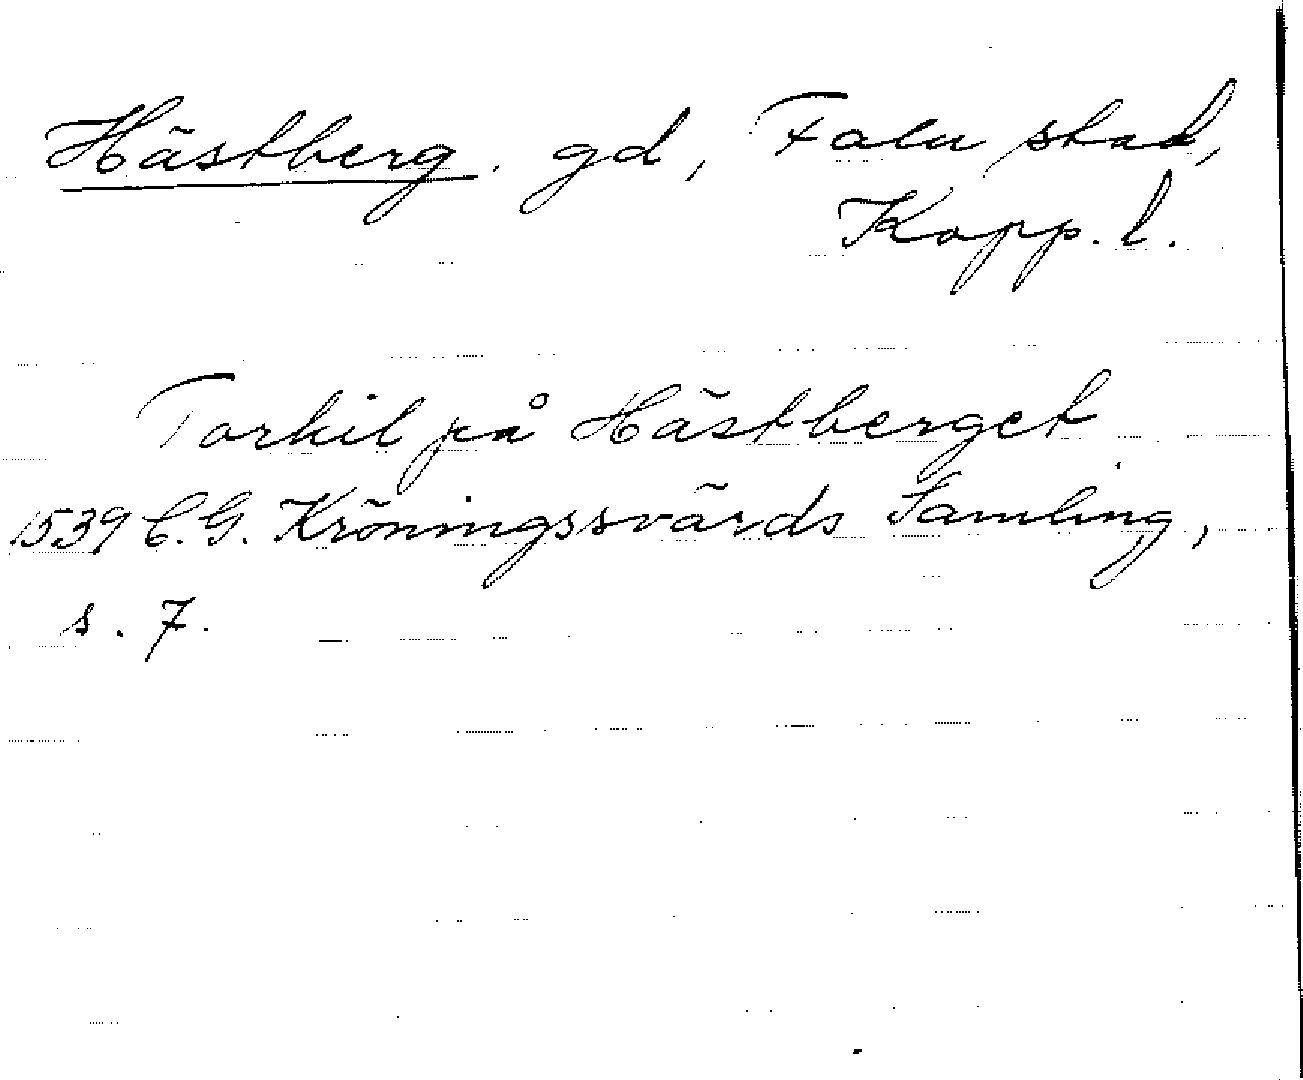 Hästberg. gd, Falu stad,
Kopp. l.
Torkil på Hästberget
1539 C.G. Kröningssvärds Samling,
s. 7.